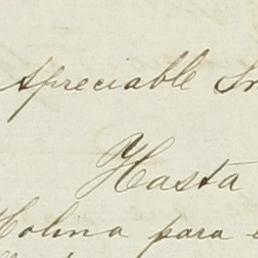 Apreciable Sr
Hasta
Molina para